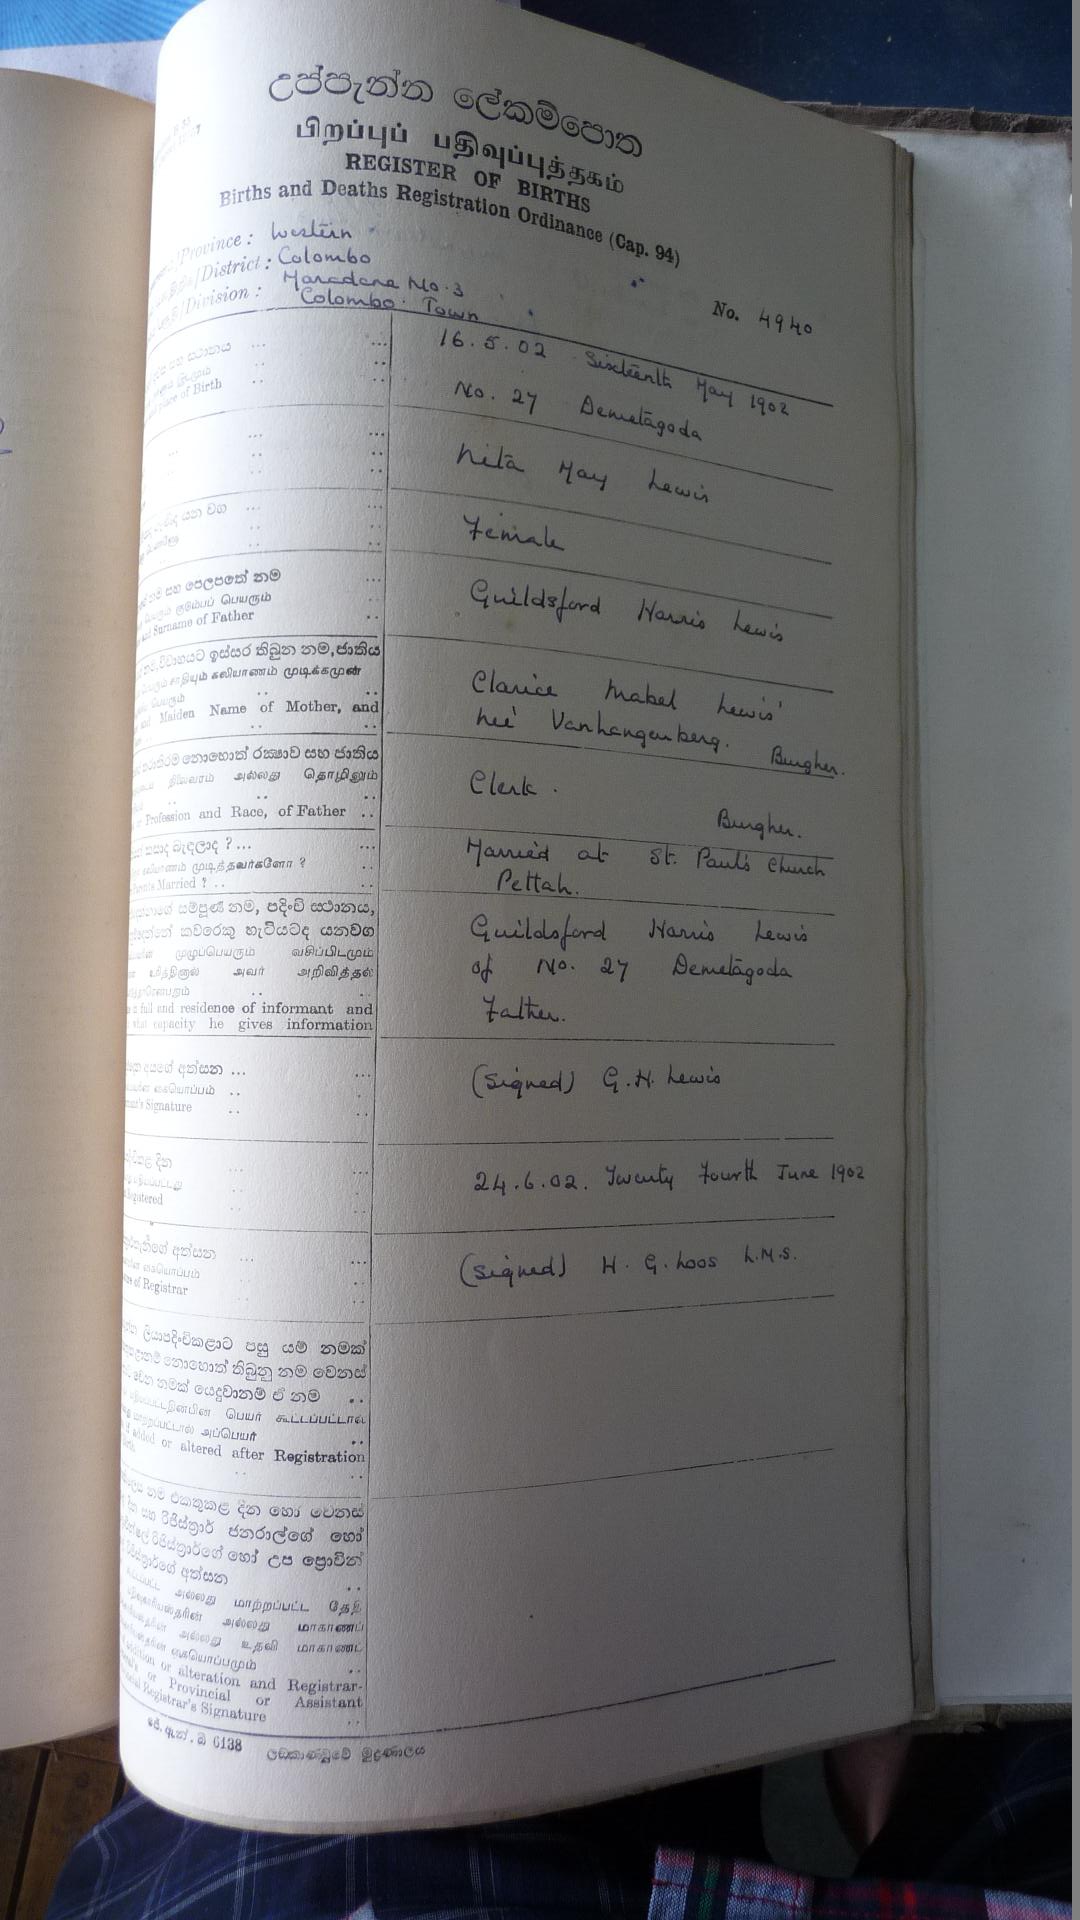 උප්පැන්න ලේකම්පොත
பிறப்புப் பதிவுப்புத்தகம்
REGISTER OF BIRTHS
Births and Deaths Registration Ordinance (Cap. 94)
/Province : Western
/District : Colombo
/Division : Maradana No. 3
Colombo Town
No. 4940
සහ ස්ථානය ... ...
place of Birth
16.5.02 Sixteenth May 1902
No. 27 Demetagoda
Nita May Lewis
යන වග
Female
නම සහ පෙලපතේ නම
பெயரும் குடும்பப் பெயரும்
and Surname of Father
Guildsford Harris Lewis
නම, විවාහයට ඉස්සර තිබුන නම, ජාතිය
சாதியும் கலியாணம் முடிக்கமுன்
பெயரும்
and Maiden Name of Mother, and
Clarice Mabel Lewis
neé Vanhangenberg. Burgher.
තරාතිරම නොහොත් රක්ෂාව සහ ජාතිය
நிலவரம் அல்லது தொழிலும்
or Profession and Race, of Father ..
Clerk.
Burgher.
කසාද බැඳලාද ? ...
கலியாணம் முடித்தவர்களோ ?
Parents Married ? ..
Married at St. Paul's Church
Pettah.
සම්පූර්ණ නම, පදිංචි ස්ථානය,
කවරෙකු හැටියටද යනවග
முழுப்பெயரும் வசிப்பிடமும்
அவர் அறிவித்தல்
full and residence of informant and
what capacity he gives information
Guildsford Harris Lewis
of No. 27 Demetagoda
Father.
අයගේ අත්සන ...
கையொப்பம் ..
Signature
(Signed) G. H. Lewis
දින
Registered
24.6.02. Twenty Fourth June 1902
අත්සන
கையொப்பம்
of Registrar
(Signed) H. G. Loos L.M.S.
ලියාපදිංචිකළාට පසු යම් නමක්
නොහොත් තිබුනු නම වෙනස්
වෙන නමක් යෙදුවානම් ඒ නම
பெயர் கூட்டப்பட்டால்
மாற்றப்பட்டால் அப்பெயர்
if added or altered after Registration
නම එකතුකළ දින හෝ වෙනස්
දින සහ රෙජිස්ත්‍රාර් ජනරාල්ගේ හෝ
රෙජිස්ත්‍රාර්ගේ හෝ උප ප්‍රොවින්
රෙජිස්ත්‍රාර්ගේ අත්සන
அல்லது மாற்றப்பட்ட தேதி
அல்லது மாகாணப்
அல்லது உதவி மாகாணப்
கையொப்பமும்
addition or alteration and Registrar-
or Provincial or Assistant
Registrar's Signature
ජේ. ඇන්. ඩ 6138 ලංකාණ්ඩුවේ මුද්‍රණාලය